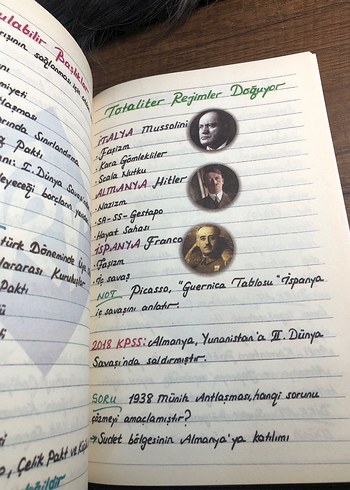 ulabilir Başlıklar
arışının sağlanması için
miyeti
laşması
arında Sınırlandırma
Paktı
anı: II. Dünya Savaşı
leyeceği borçların
türk Döneminde Üye
lararası Kuruluşlar
Paktı
ü
ti
si
o, Çelik Pakt ve
değildir
Totaliter Rejimler Doğuyor
İTALYA Mussolini
· Faşizm
· Kara Gömlekliler
· Scala Nutku
ALMANYA Hitler
· Nazizm
· SA-SS-Gestapo
· Hayat Sahası
İSPANYA Franco
· Faşizm
· İç savaş
NOT Picasso, "Guernica Tablosu" İspanya
iç savaşını anlatır.
2018 KPSS: Almanya, Yunanistan'a II. Dünya
Savaşı'nda saldırmıştır.
SORU 1938 Münih Antlaşması, hangi sorunu
çözmeyi amaçlamıştır?
→ Sudet bölgesinin Almanya'ya katılımı